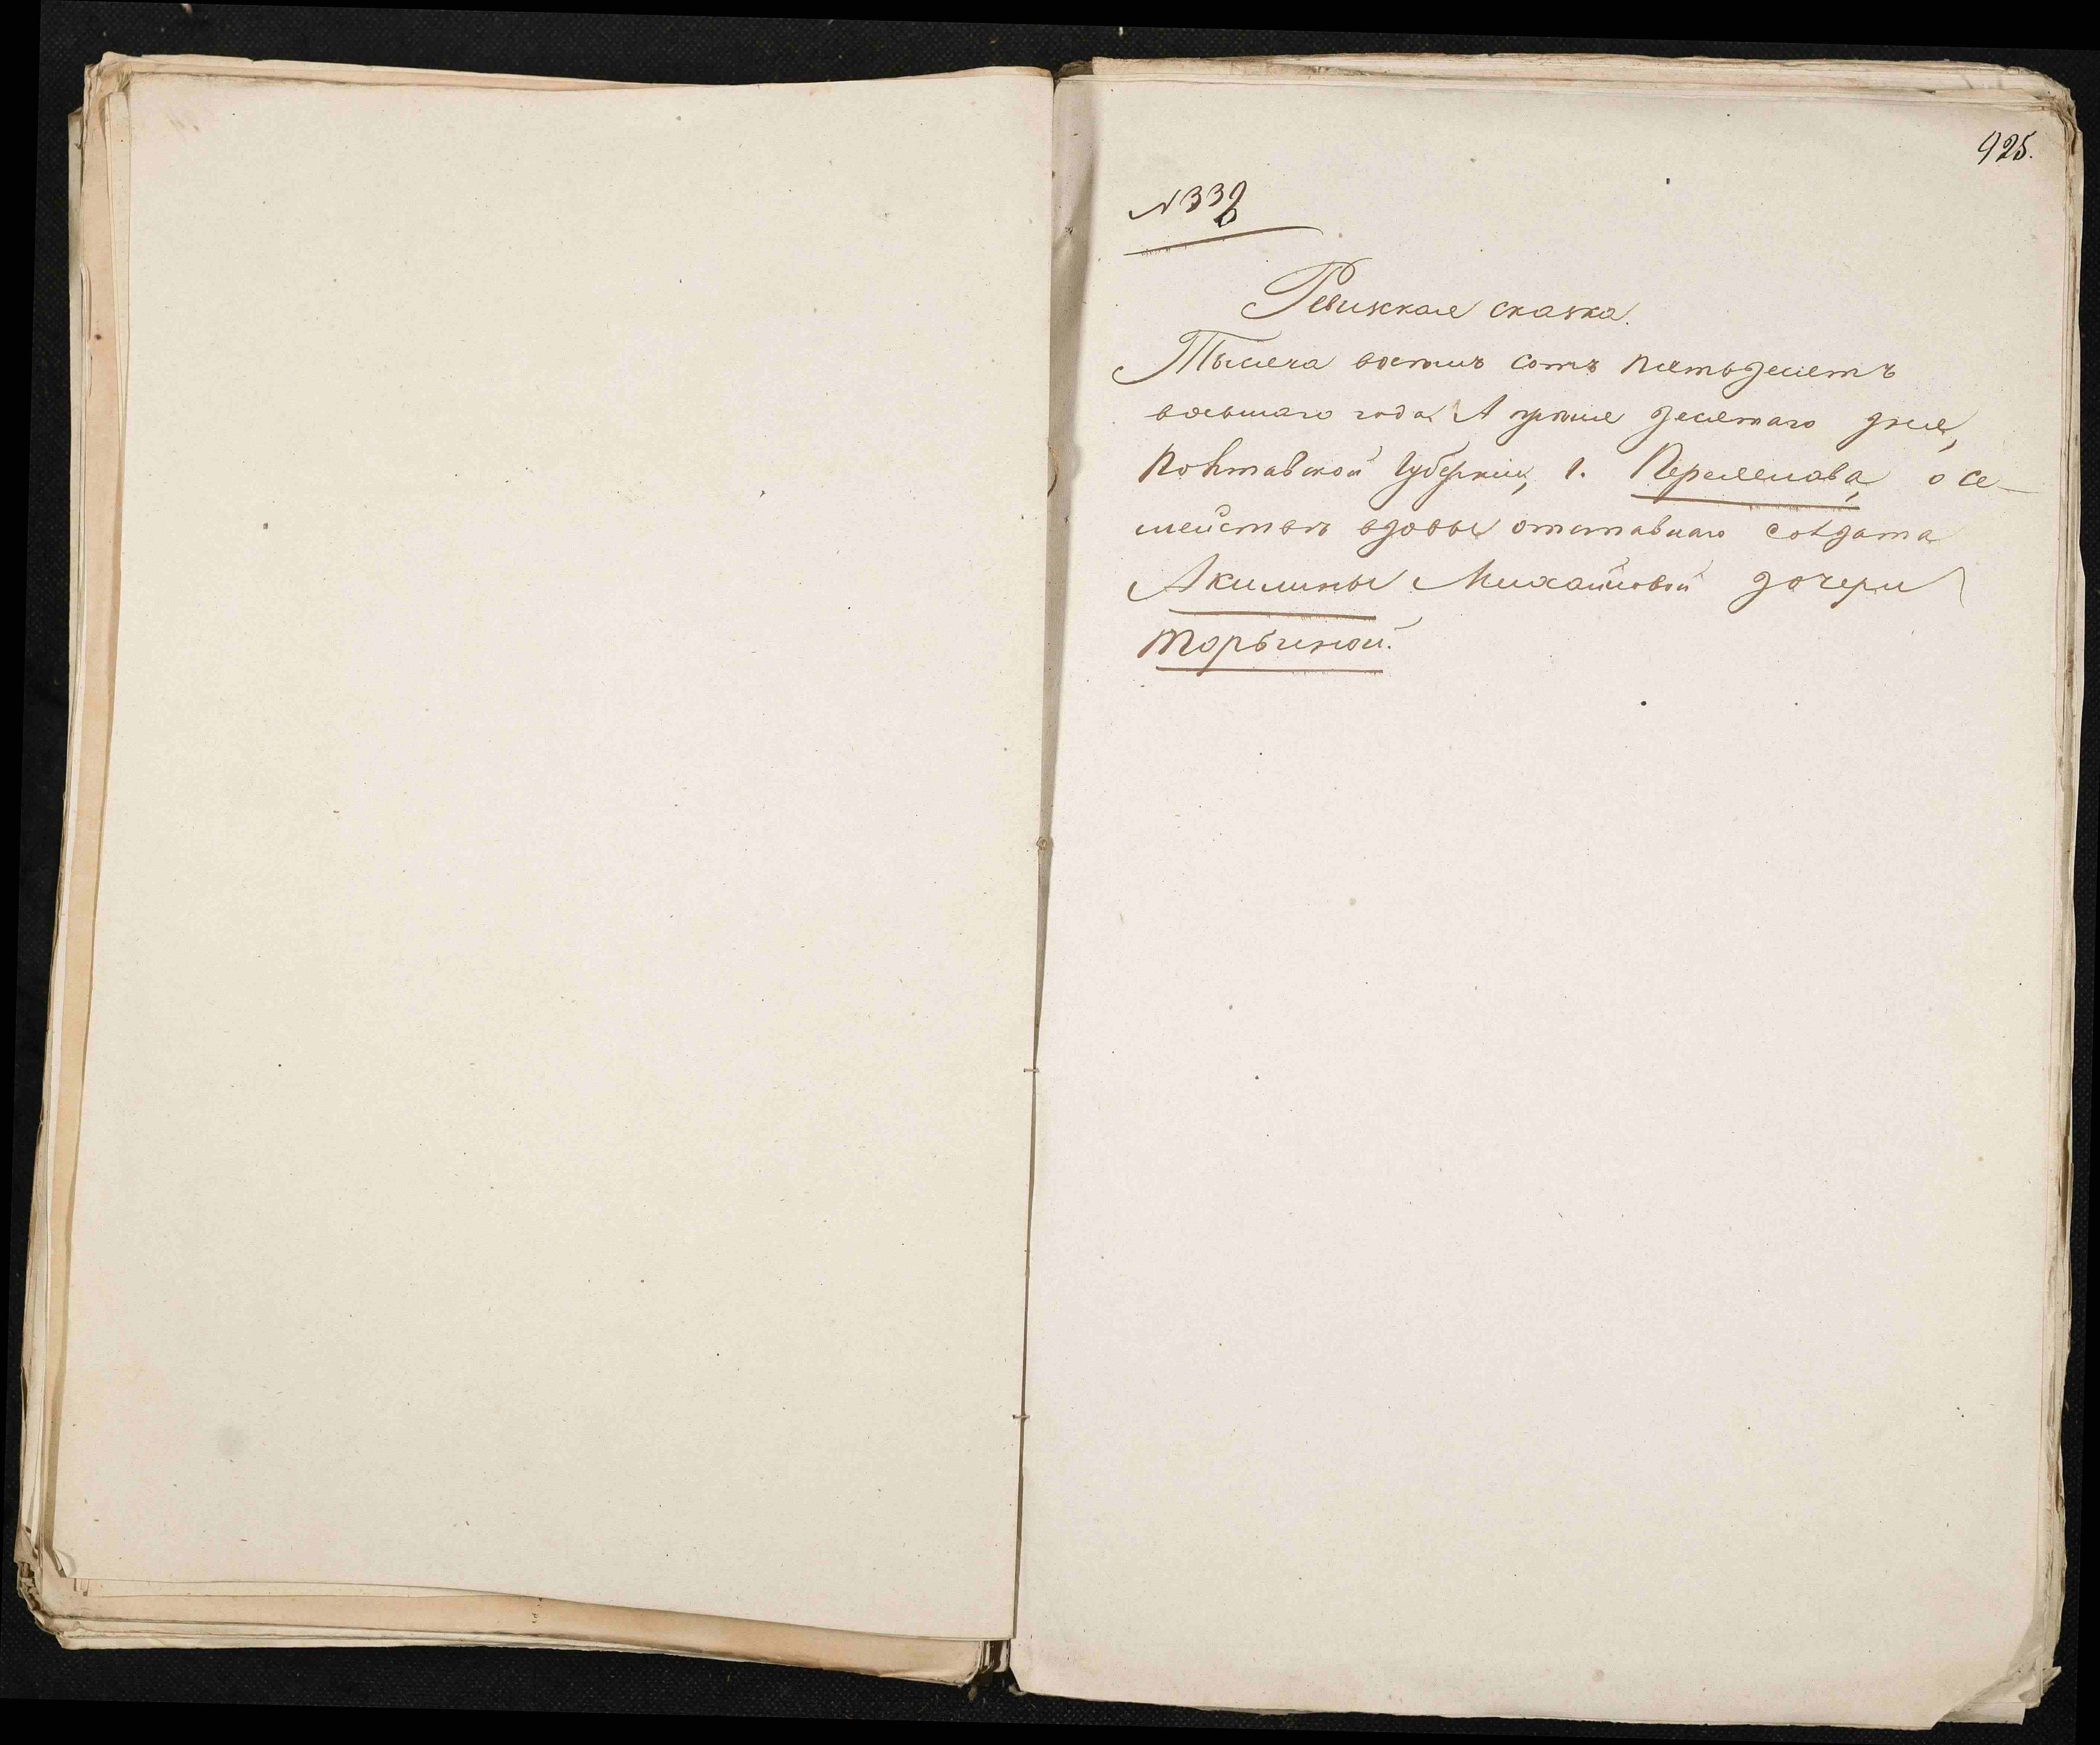 925.
№ 338
Ревизская сказка.
Тысяча восемь сотъ пятьдесятъ
восьмаго года Апреля десятаго дня,
Полтавской Губерніи, г. Переяслава, о се-
мействѣ вдовы отставнаго солдата
Акилины Михайловой дочери
Торбиной.